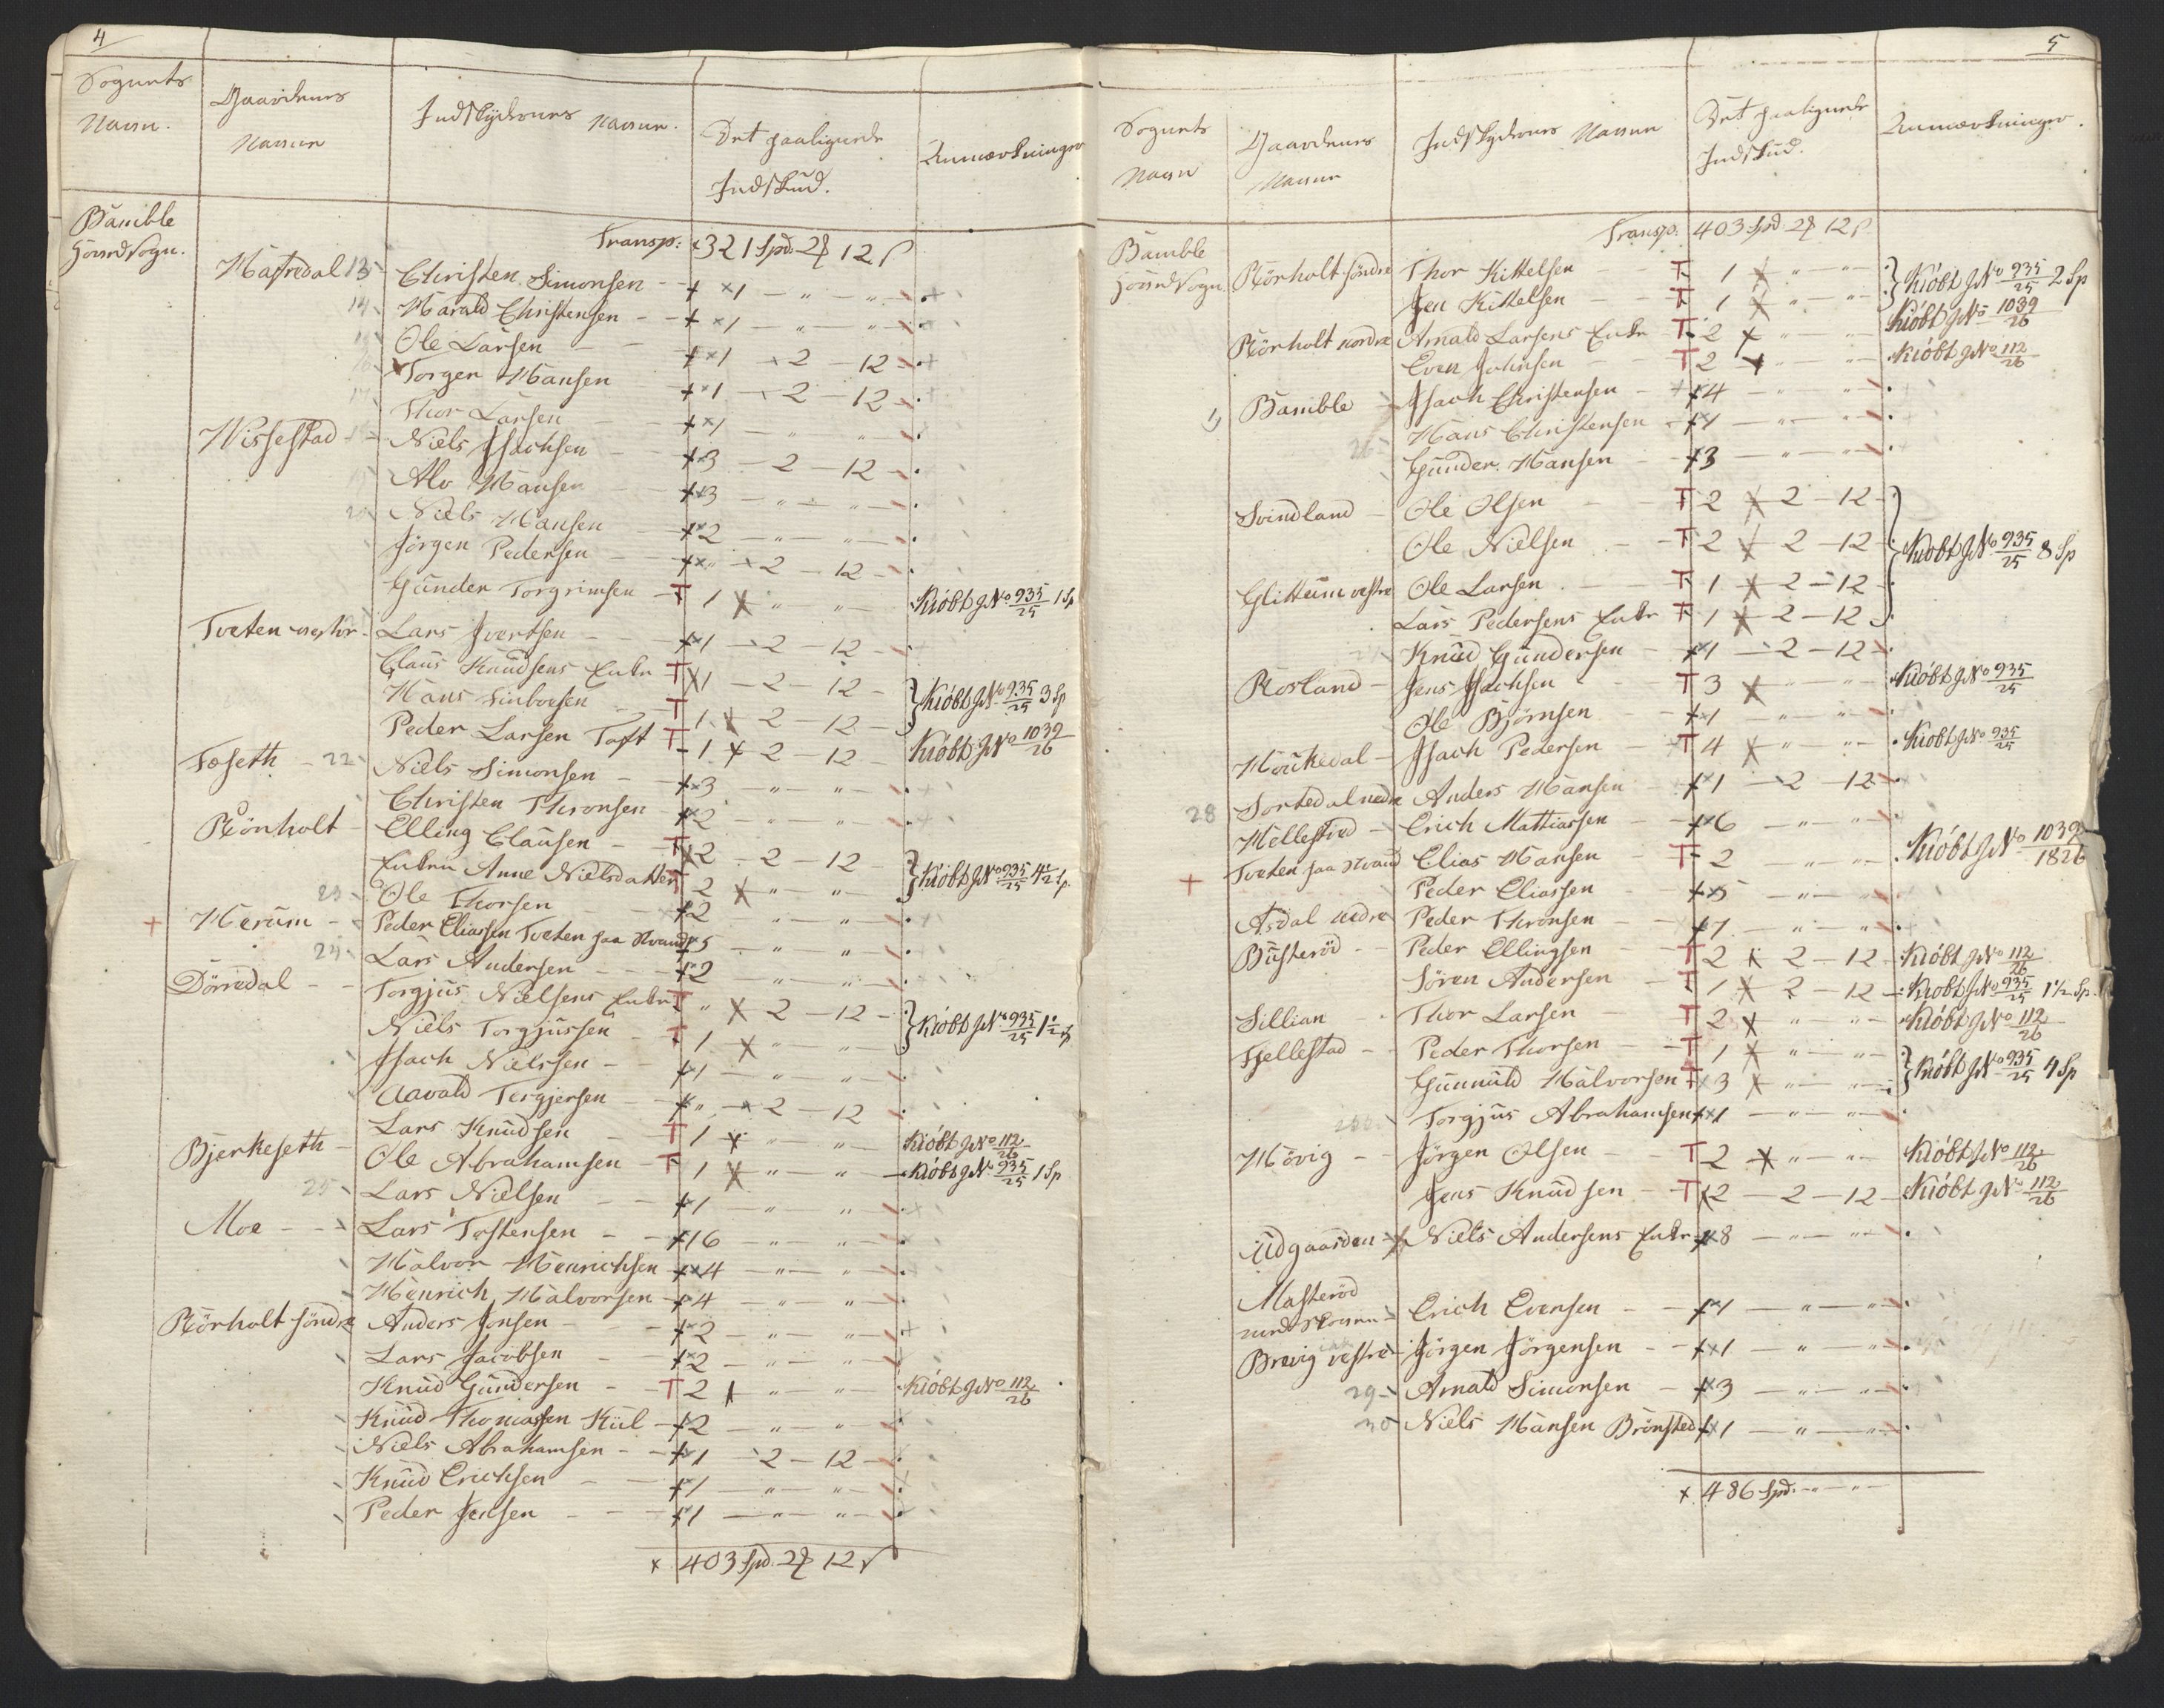 4
Sognets Navn.
Gaardenes Navne
Indskydernes Navne.
Det paalignede Indskud.
Anmærkninger
Bamble Hovedsogn.
Transp: 321 Spd. 2 12
Hafredal 13 Christen Simonsen 1 — " — "
14 Harald Christensen 1 — " — "
Ole Larsen 1 — 2 — 12
Torger Hansen 1 — 2 — 12
Thor Larsen 1 — " — "
Wissestad Niels Isachsen 3 — 2 — 12
Alv Hansen 3 — " — "
Niels Hansen 2 — " — "
Jörgen Pedersen " — 2 — 12
Gunder Torgrimsen T 1 " " Kiöbt JNo 935/25 1 Sp
Tveten vestre Lars Ivertsen 1 — 2 — 12
Claus Knudsens Enke T 1 — 2 — 12
Hans Simonsen T 1 2 12 } Kiöbt JNo 935/25 3 Sp
Peder Larsen Toft T 1 2 12 Kiöbt JNo 1039/26
Foseth 22 Niels Simonsen 3 — " — "
Christen Thronsen 2 — " — "
Rönholt Elling Clausen T 2 2 — 12
Enken Anne Nielsdatter T 2 " " } Kiöbt JNo 935/25 4½ Sp.
23 Ole Thorsen 2 " — "
+ Herum Peder Eliassen Tveten paa Strand 5 — " — "
24 Lars Andersen 2 — " — "
Dörredal Torgjus Nielsens Enke T " 2 — 12
Niels Torgjussen T 1 " " } Kiöbt JNo 935/25 1½ Sp
Isach Nielssen 1 — " — "
Aavald Torgjersen " — 2 — 12
Lars Knudsen T 1 " " Kiöbt JNo 112/26
Bjerkeseth Ole Abrahamsen T 1 " " Kiöbt JNo 935/25 1 Sp
25 Lars Nielsen 1 — " — "
Moe Lars Tostensen 16 — " — "
Halvor Henrichsen 4 — " — "
Henrich Halvorsen 4 — " — "
Rörholt söndre Anders Jonsen 2 — " — "
Lars Jacobsen 2 — " — "
Knud Gundersen T 2 " " Kiöbt JNo 112/26
Knud Thomassen Kiil 2 — " — "
Niels Abrahamsen 1 — 2 — 12
Knud Erichsen 1 — " — "
Peder Jensen 1 — " — "
x 403 Spd. 2 12
5
Sognets Navn
Gaardenes Navne
Indskydernes Navne
Det paalignede Indskud.
Anmærkninger.
Bamble Hovedsogn
Transp: 403 Spd. 2 12
Rörholt söndre Thor Kittelsen T 1 " "
Jen Kittelsen T 1 " " } Kiöbt JNo 935/25 2 Sp
Rörholt nordre Arnald Larsens Enke T 2 " " Kiöbt JNo 1039/26
Even Johnsen T 2 " " Kiöbt JNo 112/26
Bamble Isach Christensen 4 — " — "
Hans Christensen 1 — " — "
Gunder Hansen 3 — " — "
Svindland Ole Olsen T 2 2 — 12
Ole Nielsen T 2 2 — 12 } Kiöbt JNo 935/25 8 Sp
Glittum vestre Ole Larsen T 1 2 — 12
Lars Pedersens Enke T 1 2 — 12
Knud Gundersen 1 — 2 — 12
Rosland Jens Isachsen T 3 " " Kiöbt JNo 935/25
Ole Bjørnsen 1 " — "
Houkedal Isach Pedersen T 4 " " Kiöbt JNo 935/25
28 Sortedal nedre Anders Hansen 1 — 2 — 12
Hellestved Erich Mathiassen 6 — " — "
+ Tveten paa Strand Elias Hansen T 2 " — " Kiöbt JNo 1039/1826
Peder Eliassen 5 — " — "
Asdal nedre Peder Thronsen 7 — " — "
Busteröd Peder Ellingsen T 2 2 — 12 Kiöbt JNo 112/26
Sören Andersen T 1 2 — 12 Kiöbt JNo 935/25 1½ Sp.
Sillian Thor Larsen T 2 " " Kiöbt JNo 112/26
Fjellestad Peder Thorsen T 1 " "
Gunnuld Halvorsen T 3 " " } Kiöbt JNo 935/25 4 Sp
Torgjus Abrahamsen 1 — " — "
Hövig Jörgen Olsen T 2 " " Kiöbt JNo 112/26
Jens Knudsen T 2 — 2 — 12 Kiöbt JNo 112/26
Udgaarden Niels Andersens Enke 8 — " — "
Hasteröd
Erich Evensen 1 — " — "
Brevig vestre Jörgen Jörgensen 1 — " — "
29 Arnald Simonsen 3 — " — "
30 Niels Hansen Brönsted 1 — " — "
x 486 Spd. " — "